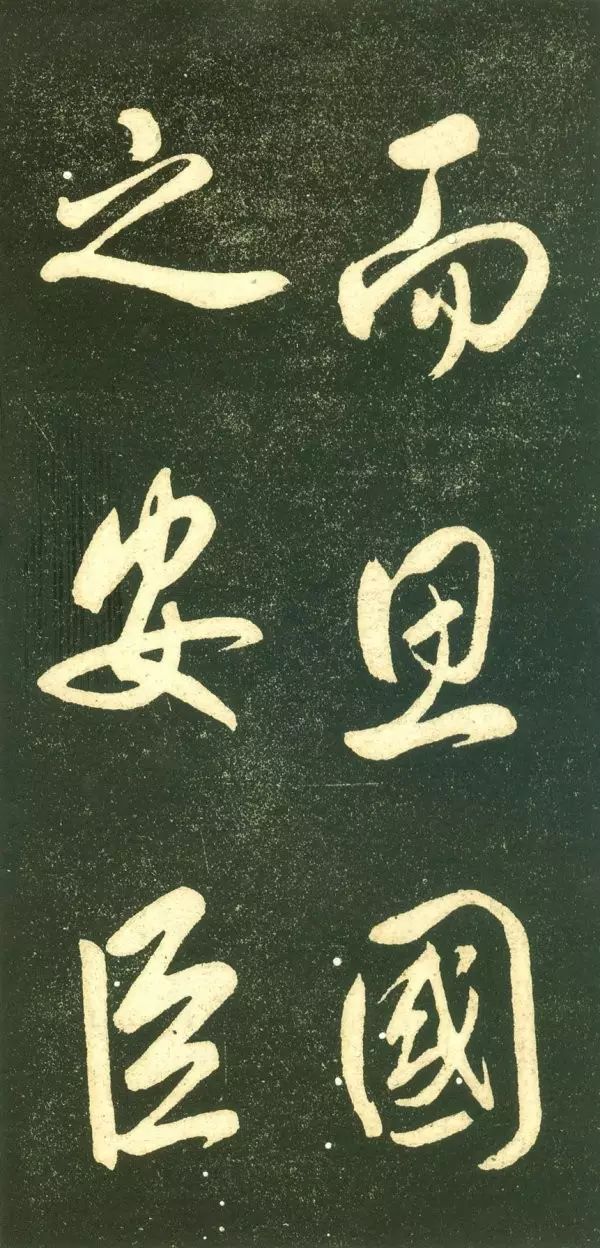 而思國
之安臣